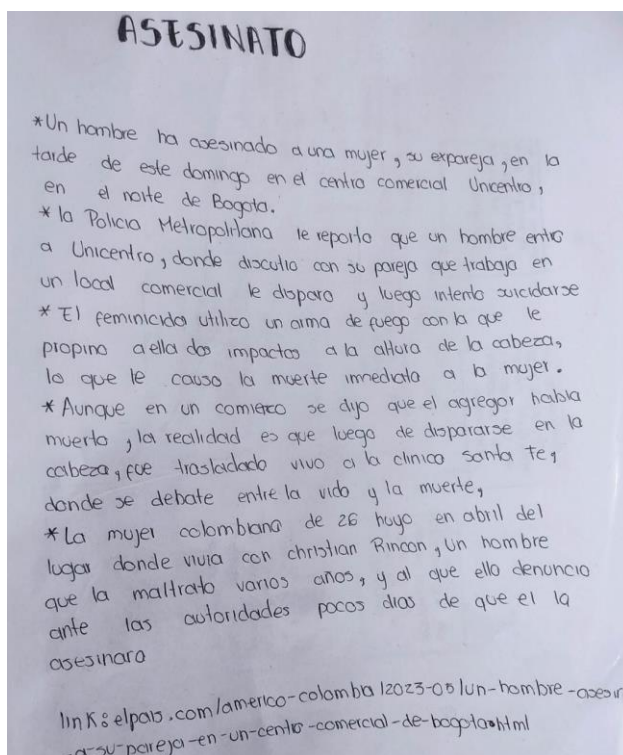 ASESINATO
*Un hombre ha asesinado a una mujer, su expareja, en la
tarde de este domingo en el centro comercial Unicentro,
en el norte de Bogota.
* la Policia Metropolitana le reporto que un hombre entro
a Unicentro, donde discutio con su pareja que trabaja en
un local comercial le disparo y luego intento suicidarse
* El feminicida utilizo un arma de fuego con la que le
propino a ella dos impactos a la altura de la cabeza,
lo que le causo la muerte inmediata a la mujer.
* Aunque en un comiezo se dijo que el agregor habia
muerto, la realidad es que luego de dispararse en la
cabeza, fue trasladado vivo a la clinica santa fe,
donde se debate entre la vida y la muerte,
*La mujer colombiana de 26 huyo en abril del
lugar donde vivia con christian Rincon, un hombre
que la maltrato varios años, y al que ella denuncio
ante las autoridades pocos dias de que el la
asesinara
link: elpais.com/america-colombia/2023-05/un-hombre-asesin
a-su-pareja-en-un-centro-comercial-de-bogota.html